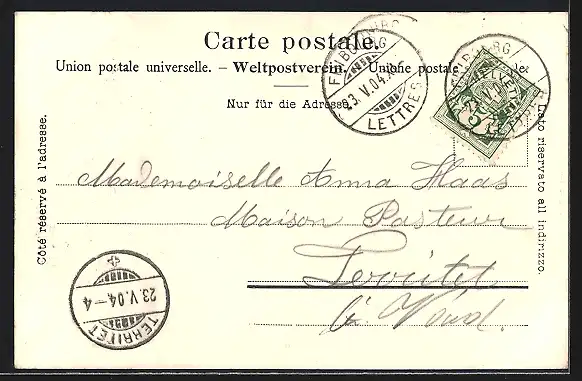 Carte postale.
Union postale universelle. – Weltpostverein. – Unione postale
Nur für die Adresse.
Côté réservé à l'adresse.
Lato riservato all indirizzo.
FRIBOURG
23. V. 04.
LETTRES
FRIBOURG
HELVETIA
5
Mademoiselle Anna Haas
Maison Pasteur
Territet
Vaud.
TERRITET
23. V. 04. – 4